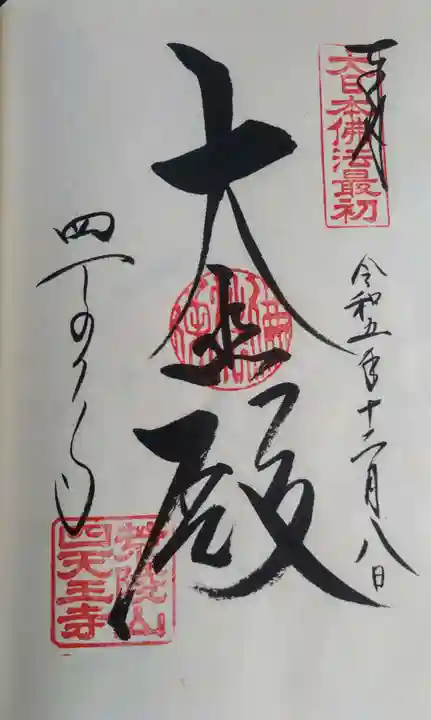 奉拝
大日本佛法最初
令和五年十二月八日
大黒殿
四天王寺
荒陵山
四天王寺